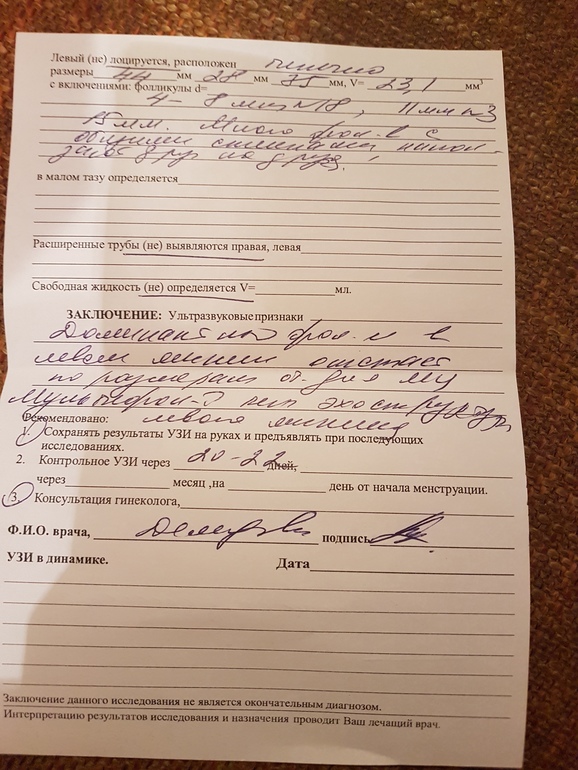 Левый (не) лоцируется, расположен типично
размеры 44 мм 28 мм 35 мм, V= 23,1 мм³
с включениями: фолликулы d=
4 - 8 мм №18, 11 мм №3
15 мм. Много фол-в с
общими стенками,
друг на друга.
в малом тазу определяется
Расширенные трубы (не) выявляются правая, левая
Свободная жидкость (не) определяется V= мл.
ЗАКЛЮЧЕНИЕ: Ультразвуковые признаки
Доминантный фол-л в
левом яичнике отстает
по размерам от дня МЦ
Мультифол-й тип эхоструктуры
Рекомендовано: левого яичника
1. Сохранять результаты УЗИ на руках и предъявлять при последующих
исследованиях.
2. Контрольное УЗИ через 20-22 дней,
через месяц ,на день от начала менструации.
3. Консультация гинеколога,
Ф.И.О. врача, подпись
УЗИ в динамике. Дата
Заключение данного исследования не является окончательным диагнозом.
Интерпретацию результатов исследования и назначения проводит Ваш лечащий врач.